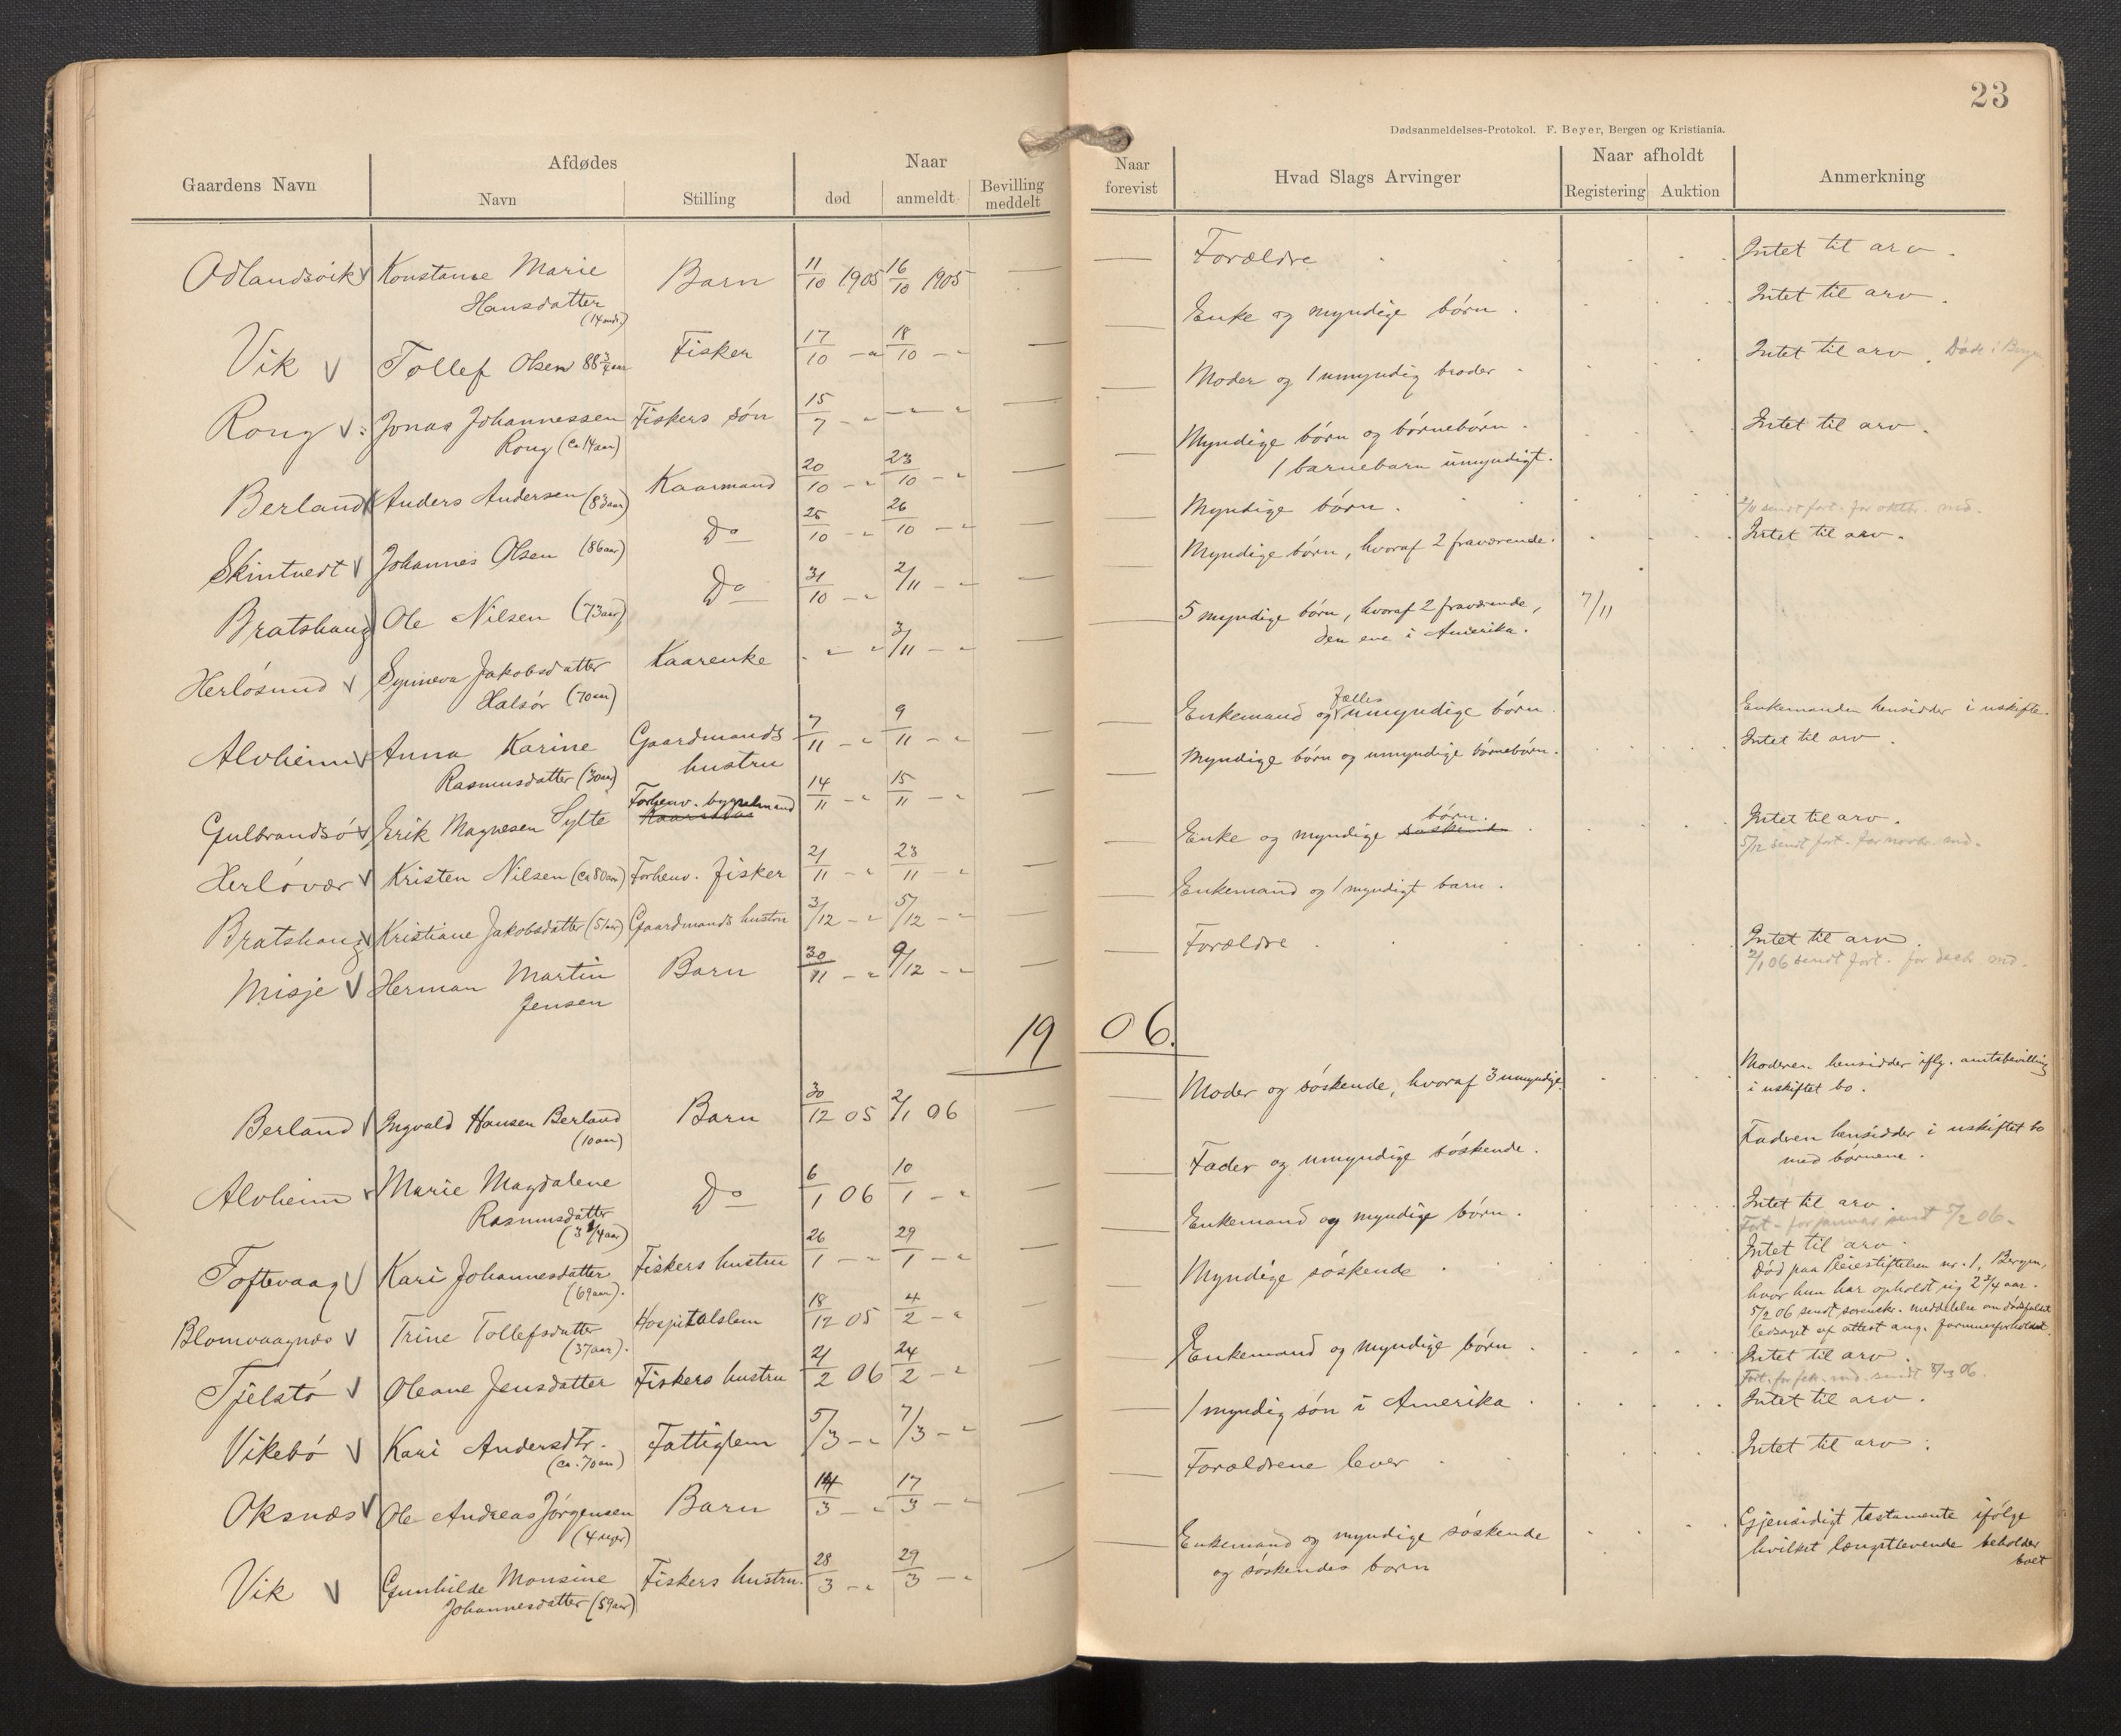 23
Dødsanmeldelses-Protokol. F. Beyer, Bergen og Kristiania.
Gaardens Navn
Afdødes
Navn
Stilling
Naar
død
anmeldt
Bevilling meddelt
Naar forevist
Hvad Slags Arvinger
Naar afholdt
Registering
Auktion
Anmerkning
Odlandsvik √ Konstanse Marie Barn 11/10 1905 16/10 1905 — — Forældre Intet til arv.
Hansdatter
(14 mdr)
Vik √ Tollef Olsen 88 3/4 aar Fisker 17/10 — " 18/10 — " — — Enke og myndige børn. Intet til arv.
Rong √ Jonas Johannessen Fiskers søn 15/7 — " — " — " — — Moder og 1 umyndig broder. Intet til arv. Døde i Bergen
Rong (ca 14 aar)
Berland √ Anders Andersen (83 aar) Kaarmand 20/10 — " 23/10 — " — — Myndige børn og børnebørn. Intet til arv.
1 barnebarn umyndigt.
Skintvedt √ Johannes Olsen (86 aar) Do 25/10 — " 26/10 — " — — Myndige børn.
2/11 sendt fort. for oktbr. md.
Bratshaug √ Ole Nilsen (73 aar) Do 31/10 — " 2/11 — " — — Myndige børn, hvoraf 2 fraværende. Intet til arv.
Herløsund √ Synneva Jakobsdatter Kaarenke " " 3/11 — " — — 5 myndige børn, hvoraf 2 fraværende, 7/11
Halsør (70 aar) den ene i Amerika.
Alvheim √ Anna Karine Gaardmands 7/11 — " 9/11 — " — — Enkemand og fælles umyndige børn. Enkemanden hensidder i uskifte.
Rasmusdatter (30 aar) hustru
Gulbrandsø √ Erik Magnesen Sylte Forhenv. bygselmand 14/11 — " 15/11 — " — — Myndige børn og umyndige børnebørn. Intet til arv.
Herløvær √ Kristen Nilsen (ca 80 aar) Forhenv. fisker 21/11 — " 23/11 — " — — Enke og myndige søskende børn. Intet til arv.
5/12 sendt fort. for novbr. md.
Bratshaug √ Kristiane Jakobsdatter (51 aar) Gaardmands hustru 3/12 — " 5/12 — " — — Enkemand og 1 myndigt barn.
Misje √ Herman Martin Barn 30/11 — " 9/12 — " — — Forældre Intet til arv.
Jensen
2/1 06 sendt fort. for decb. md.
1906.
Berland √ Ingvald Hansen Berland Barn 30/12 05 2/1 06 — — Moder og søskende, hvoraf 3 umyndige. Moderen hensidder iflg. amtsbevilling
(10 aar) i uskiftet bo.
Alvheim √ Marie Magdalene Do 6/1 06 10/1 — " — — Fader og umyndige søskende. Fadren hensidder i uskiftet bo
Rasmusdatter med børnene.
(3 1/4 aar)
Toftevaag √ Kari Johannesdatter Fiskers hustru 26/1 — " 29/1 — " — — Enkemand og myndige børn. Intet til arv.
(69 aar). Fort. for januar sendt 5/2 06.
Blomvaagnæs √ Trine Tollefsdatter Hospitalslem 18/12 05 4/2 — " — — Myndige søskende. Intet til arv.
(37 aar). Død paa Pleiestiftelsen nr. 1, Bergen,
hvor hun har opholdt sig 2 3/4 aar.
5/2 06 sendt sorenskr. meddelelse om dødsfaldet
ledsaget af attest ang. formuesforholdet.
Tjelstø √ Oleane Jensdatter Fiskers hustru 21/2 06 24/2 — " — — Enkemand og myndige børn. Intet til arv.
Fort. for feb. md. sendt 5/3 06.
Vikebø √ Kari Andersdtr. Fattiglem 5/3 — " 7/3 — " — — 1 myndig søn i Amerika. Intet til arv.
(ca. 70 aar)
Oksnæs √ Ole Andreas Jørgensen Barn 14/3 — " 17/3 — " — — Forældrene lever. Intet til arv.
(4 uger)
Vik √ Gunhilde Monsine Fiskers hustru. 28/3 — " 29/3 — " — — Enkemand og myndige søskende Gjensidigt testamente ifølge
Johannesdatter (59 aar) og søskendes barn hvilket længstlevende beholder
boet